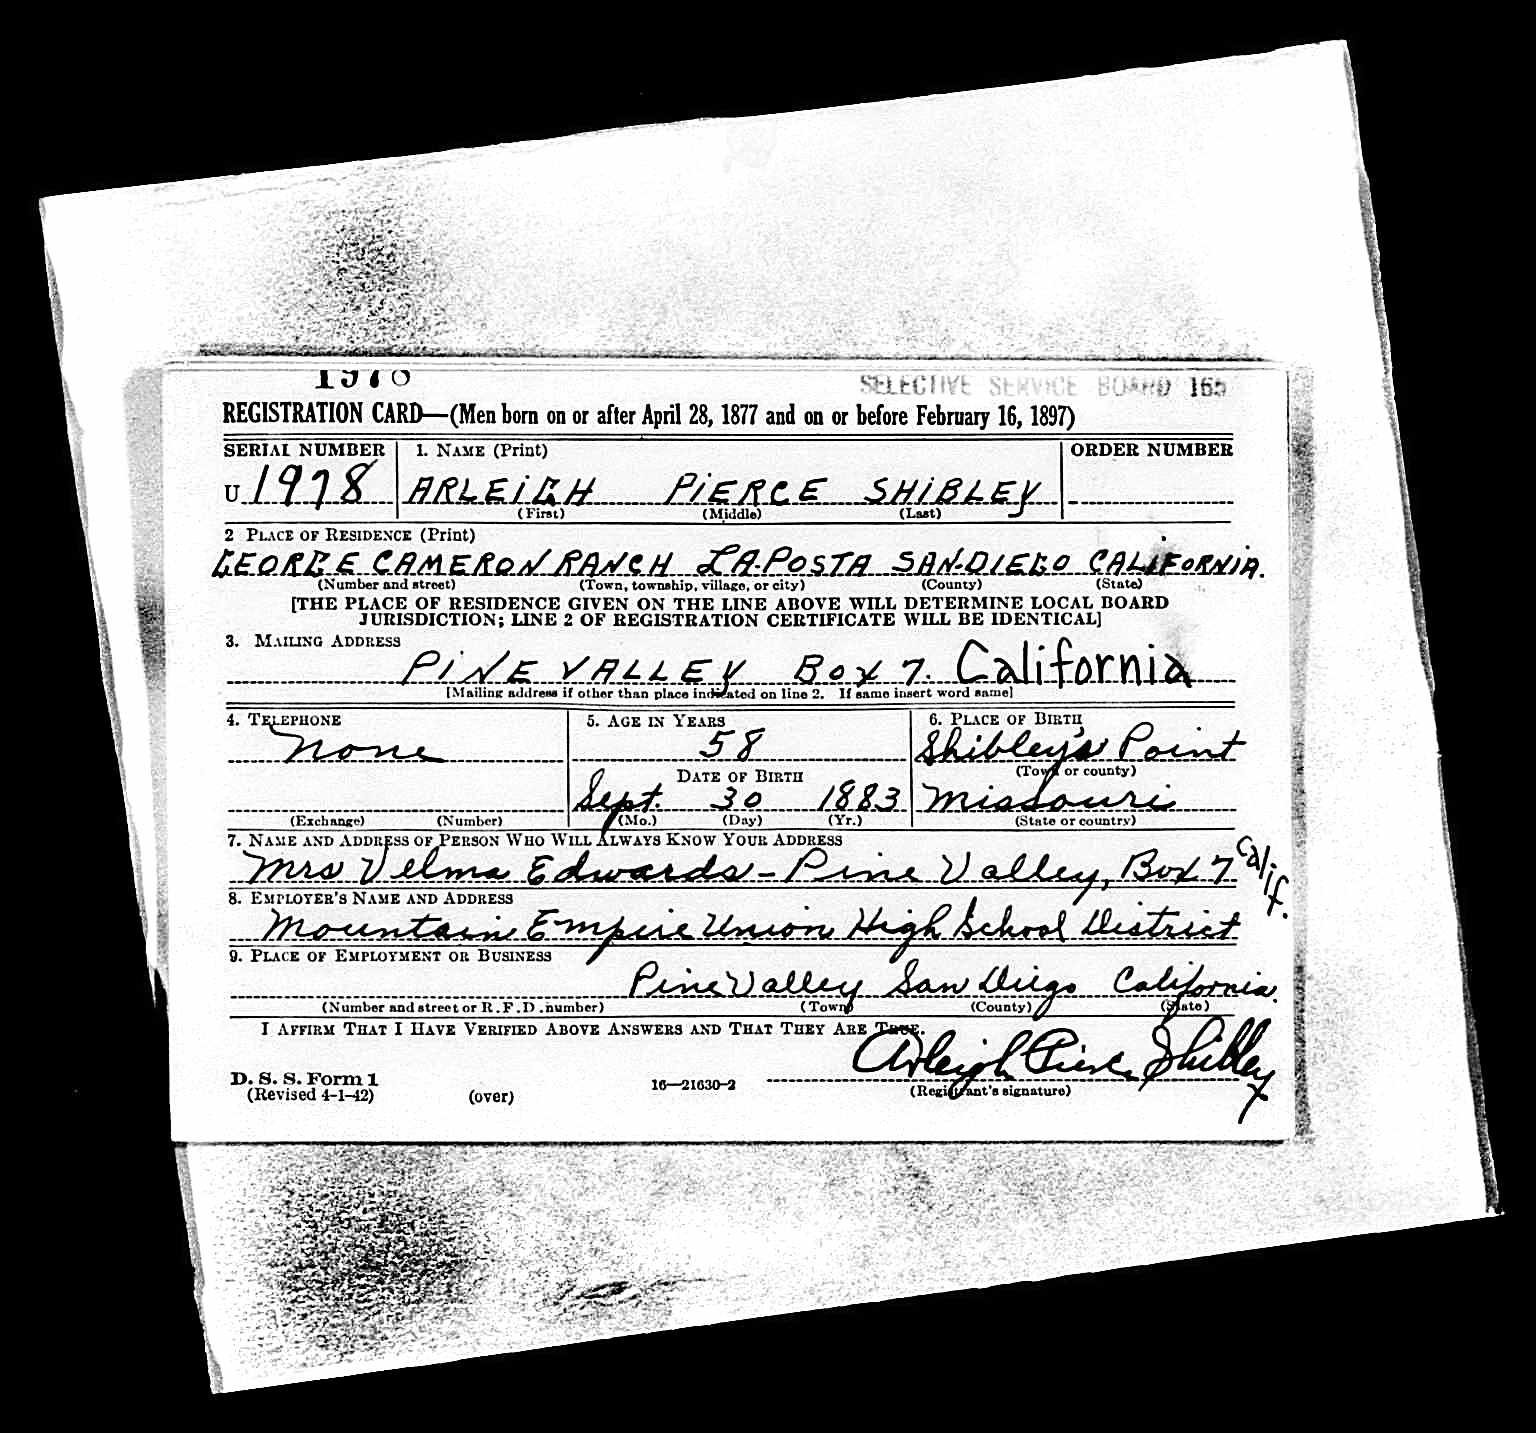 1978
SELECTIVE SERVICE BOARD 165
REGISTRATION CARD—(Men born on or after April 28, 1877 and on or before February 16, 1897)
SERIAL NUMBER 1. NAME (Print) ORDER NUMBER
U 1978 ARLEIGH PIERCE SHIBLEY
(First) (Middle) (Last)
2 PLACE OF RESIDENCE (Print)
GEORGE CAMERON RANCH LA-POSTA SAN-DIEGO CALIFORNIA.
(Number and street) (Town, township, village, or city) (County) (State)
[THE PLACE OF RESIDENCE GIVEN ON THE LINE ABOVE WILL DETERMINE LOCAL BOARD
JURISDICTION; LINE 2 OF REGISTRATION CERTIFICATE WILL BE IDENTICAL]
3. MAILING ADDRESS
PINE VALLEY BOX 7. California
[Mailing address if other than place indicated on line 2. If same insert word same]
4. TELEPHONE 5. AGE IN YEARS 6. PLACE OF BIRTH
None 58 Shibley's Point
DATE OF BIRTH (Town or county)
Sept. 30 1883 Missouri
(Exchange) (Number) (Mo.) (Day) (Yr.) (State or country)
7. NAME AND ADDRESS OF PERSON WHO WILL ALWAYS KNOW YOUR ADDRESS
Mrs Velma Edwards - Pine Valley, Box 7 Calif.
8. EMPLOYER'S NAME AND ADDRESS
Mountain Empire Union High School District
9. PLACE OF EMPLOYMENT OR BUSINESS
Pine Valley San Diego California.
(Number and street or R. F. D. number) (Town) (County) (State)
I AFFIRM THAT I HAVE VERIFIED ABOVE ANSWERS AND THAT THEY ARE TRUE.
Arleigh Pierce Shibley
D. S. S. Form 1
(Revised 4-1-42) (over) 16—21630-2 (Registrant's signature)